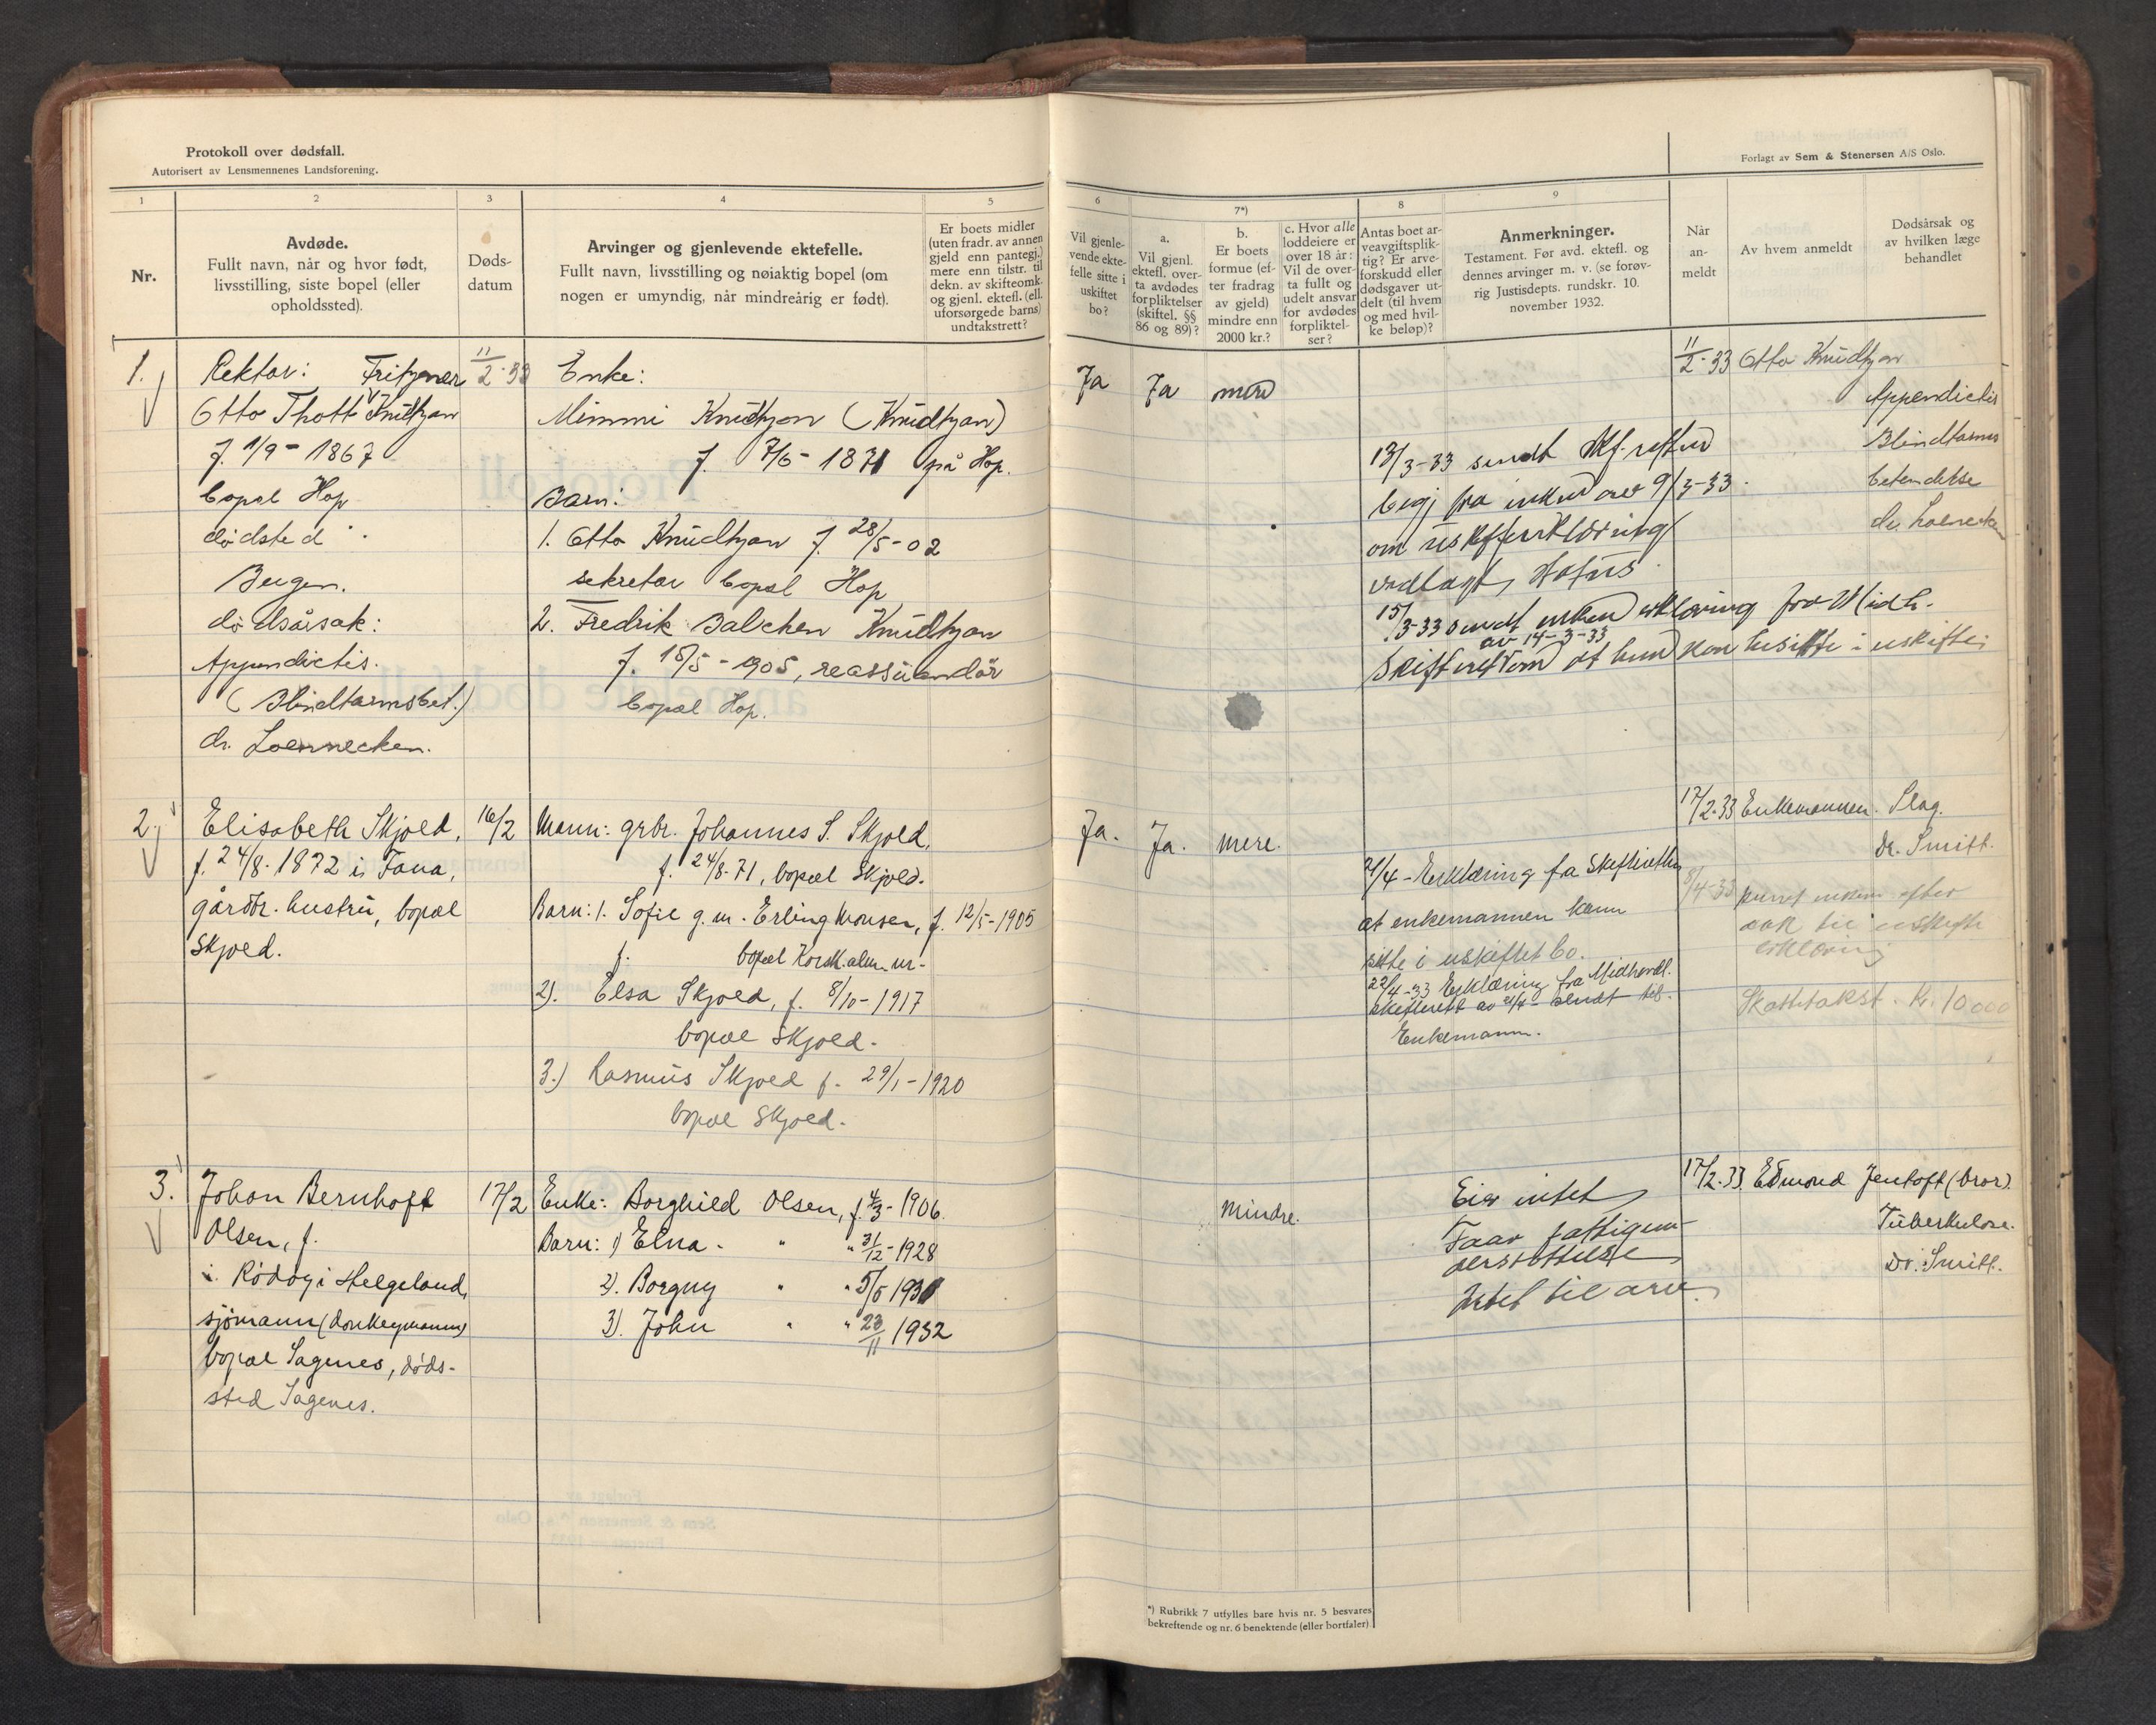 Protokoll over dødsfall.
Autorisert av Lensmennenes Landsforening.
1
2
3
4
5
Nr.
Avdøde.
Fullt navn, når og hvor født,
livsstilling, siste bopel (eller
opholdssted).
Døds-
datum
Arvinger og gjenlevende ektefelle.
Fullt navn, livsstilling og nøiaktig bopel (om
nogen er umyndig, når mindreårig er født).
Er boets midler
(uten fradr. av annen
gjeld enn pantegj.)
mere enn tilstr. til
dekn. av skifteomk.
og gjenl. ektef. (ell.
uforsørgede barns)
undtakstrett?
1.
Rektor: Fritzner
Otto Thott Knudtzon
f. 1/9 - 1867
bopel Hop
dødsted
Bergen.
dødsårsak:
Appendictis.
(Blindtarmsbet.)
dr. Loennecken.
11/2-33
Enke:
Mimmi Knudtzon (Knudtzon)
f. 7/5 - 1871 på Hop.
Barn:
1. Otto Knudtzon f. 28/5-02
sekretær bopel Hop
2. Fredrik Balchen Knudtzon
f. 15/5 - 1905, reassurandör
bopel Hop.
2.
Elisabeth Skjold,
f. 24/8-1872 i Fana,
gårdbr. hustru, bopæl
Skjold.
16/2
Mann: grbr. Johannes S. Skjold,
f. 24/8-71, bopæl Skjold.
Barn: 1. Sofie g.m. Erling Monsen, f. 12/5-1905
f. bopæl
2). Elsa Skjold, f. 8/10-1917
bopæl Skjold.
3.) Rasmus Skjold f. 29/1-1920
bopæl Skjold.
3.
Johan Bernhoft
Olsen, f.
i Rödöy i Helgeland,
sjömann (donkeymann)
bopæl Sagenes, döds-
sted Sagenes.
17/2
Enke: Borghild Olsen, f. 4/3-1906.
Barn: 1) Elna " " 31/12-1928
2). Borgny " " 5/5 1931
3). John " " 23/11 1932
Forlagt av Sem & Stenersen A/S Oslo.
6
7*)
8
9
Vil gjenle-
vende ekte-
felle sitte i
uskiftet
bo?
a.
Vil gjenl.
ektefl. over-
ta avdødes
forpliktelser
(skiftel. §§
86 og 89)?
b.
Er boets
formue (ef-
ter fradrag
av gjeld)
mindre enn
2000 kr.?
c. Hvor alle
loddeiere er
over 18 år:
Vil de over-
ta fullt og
udelt ansvar
for avdødes
forpliktel-
ser?
Antas boet ar-
veavgiftsplik-
tig? Er arve-
forskudd eller
dødsgaver ut-
delt (til hvem
og med hvil-
ke beløp)?
Anmerkninger.
Testament. Før avd. ektefl. og
dennes arvinger m. v. (se forøv-
rig Justisdepts. rundskr. 10.
november 1932.
Når
an-
meldt
Av hvem anmeldt
Dødsårsak og
av hvilken læge
behandlet
Ja
Ja
mere
13/3-33 sendt skf.retten
begj fra enken av 9/3-33.
om uskifteerklæring
vedlagt
15/3-33 sendt enken erklæring fra Midh.
av 14-3-33
Skifterett om at hun kan besitte i uskifte
11/2-33 Otto Knudtzon
Appendictis
Blindtarms
betendelse
dr. Loennecken
Ja.
Ja.
mere.
21/4 - Erklæring fra Skifteretten
at enkemannen kann
sitte i uskiftet bo.
22/4-33 Erklæring fra Midhordl.
skifterett av 21/4 - sendt til
Enkemann.
17/2-33 Enkemannen. Slag.
Dr. Smitt.
8/4-33 purret enkem. efter
til uskifte
erklæring
Skattetakst. kr. 10 000
Mindre.
Eier intet
Faar fattigun-
derstöttelse
Intet til arv.
17/2-33. Edmond Jentoft (bror).
Tuberkulose.
Dr. Smitt.
*) Rubrikk 7 utfylles bare hvis nr. 5 besvares
bekreftende og nr. 6 benektende (eller bortfaler)